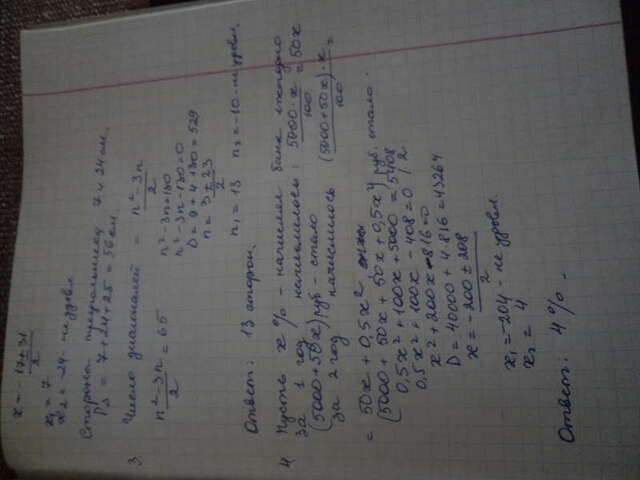 x = -17±31 / 2
x₁ = 7
x₂ = -24 - не удовл.
Стороны треугольника 7 и 24 см.
P = 7+24+25 = 56 см.
3 Число диагоналей = n²-3n / 2
n²-3n / 2 = 65
n²-3n=130
n²-3n-130=0
D = 9+4·130 = 529
n = 3±23 / 2
n₁ = 13 n₂ = -10 - не удовл.
Ответ: 13 сторон.
4 Пусть x % - начислял банк ежегодно
За 1 год начислилось: 5000·x / 100 = 50x
(5000+50x) руб - стало
за 2 год начислилось (5000+50x)·x / 100 =
= 50x + 0,5x²
(5000+50x+50x+0,5x²) руб. стало.
0,5x²+100x+5000 = 5408
0,5x²+100x-408=0 / 2
x²+200x-816=0
D = 40000+4·816 = 43264
x = -200±208 / 2
x₁ = -204 - не удовл.
x₂ = 4
Ответ: 4% -